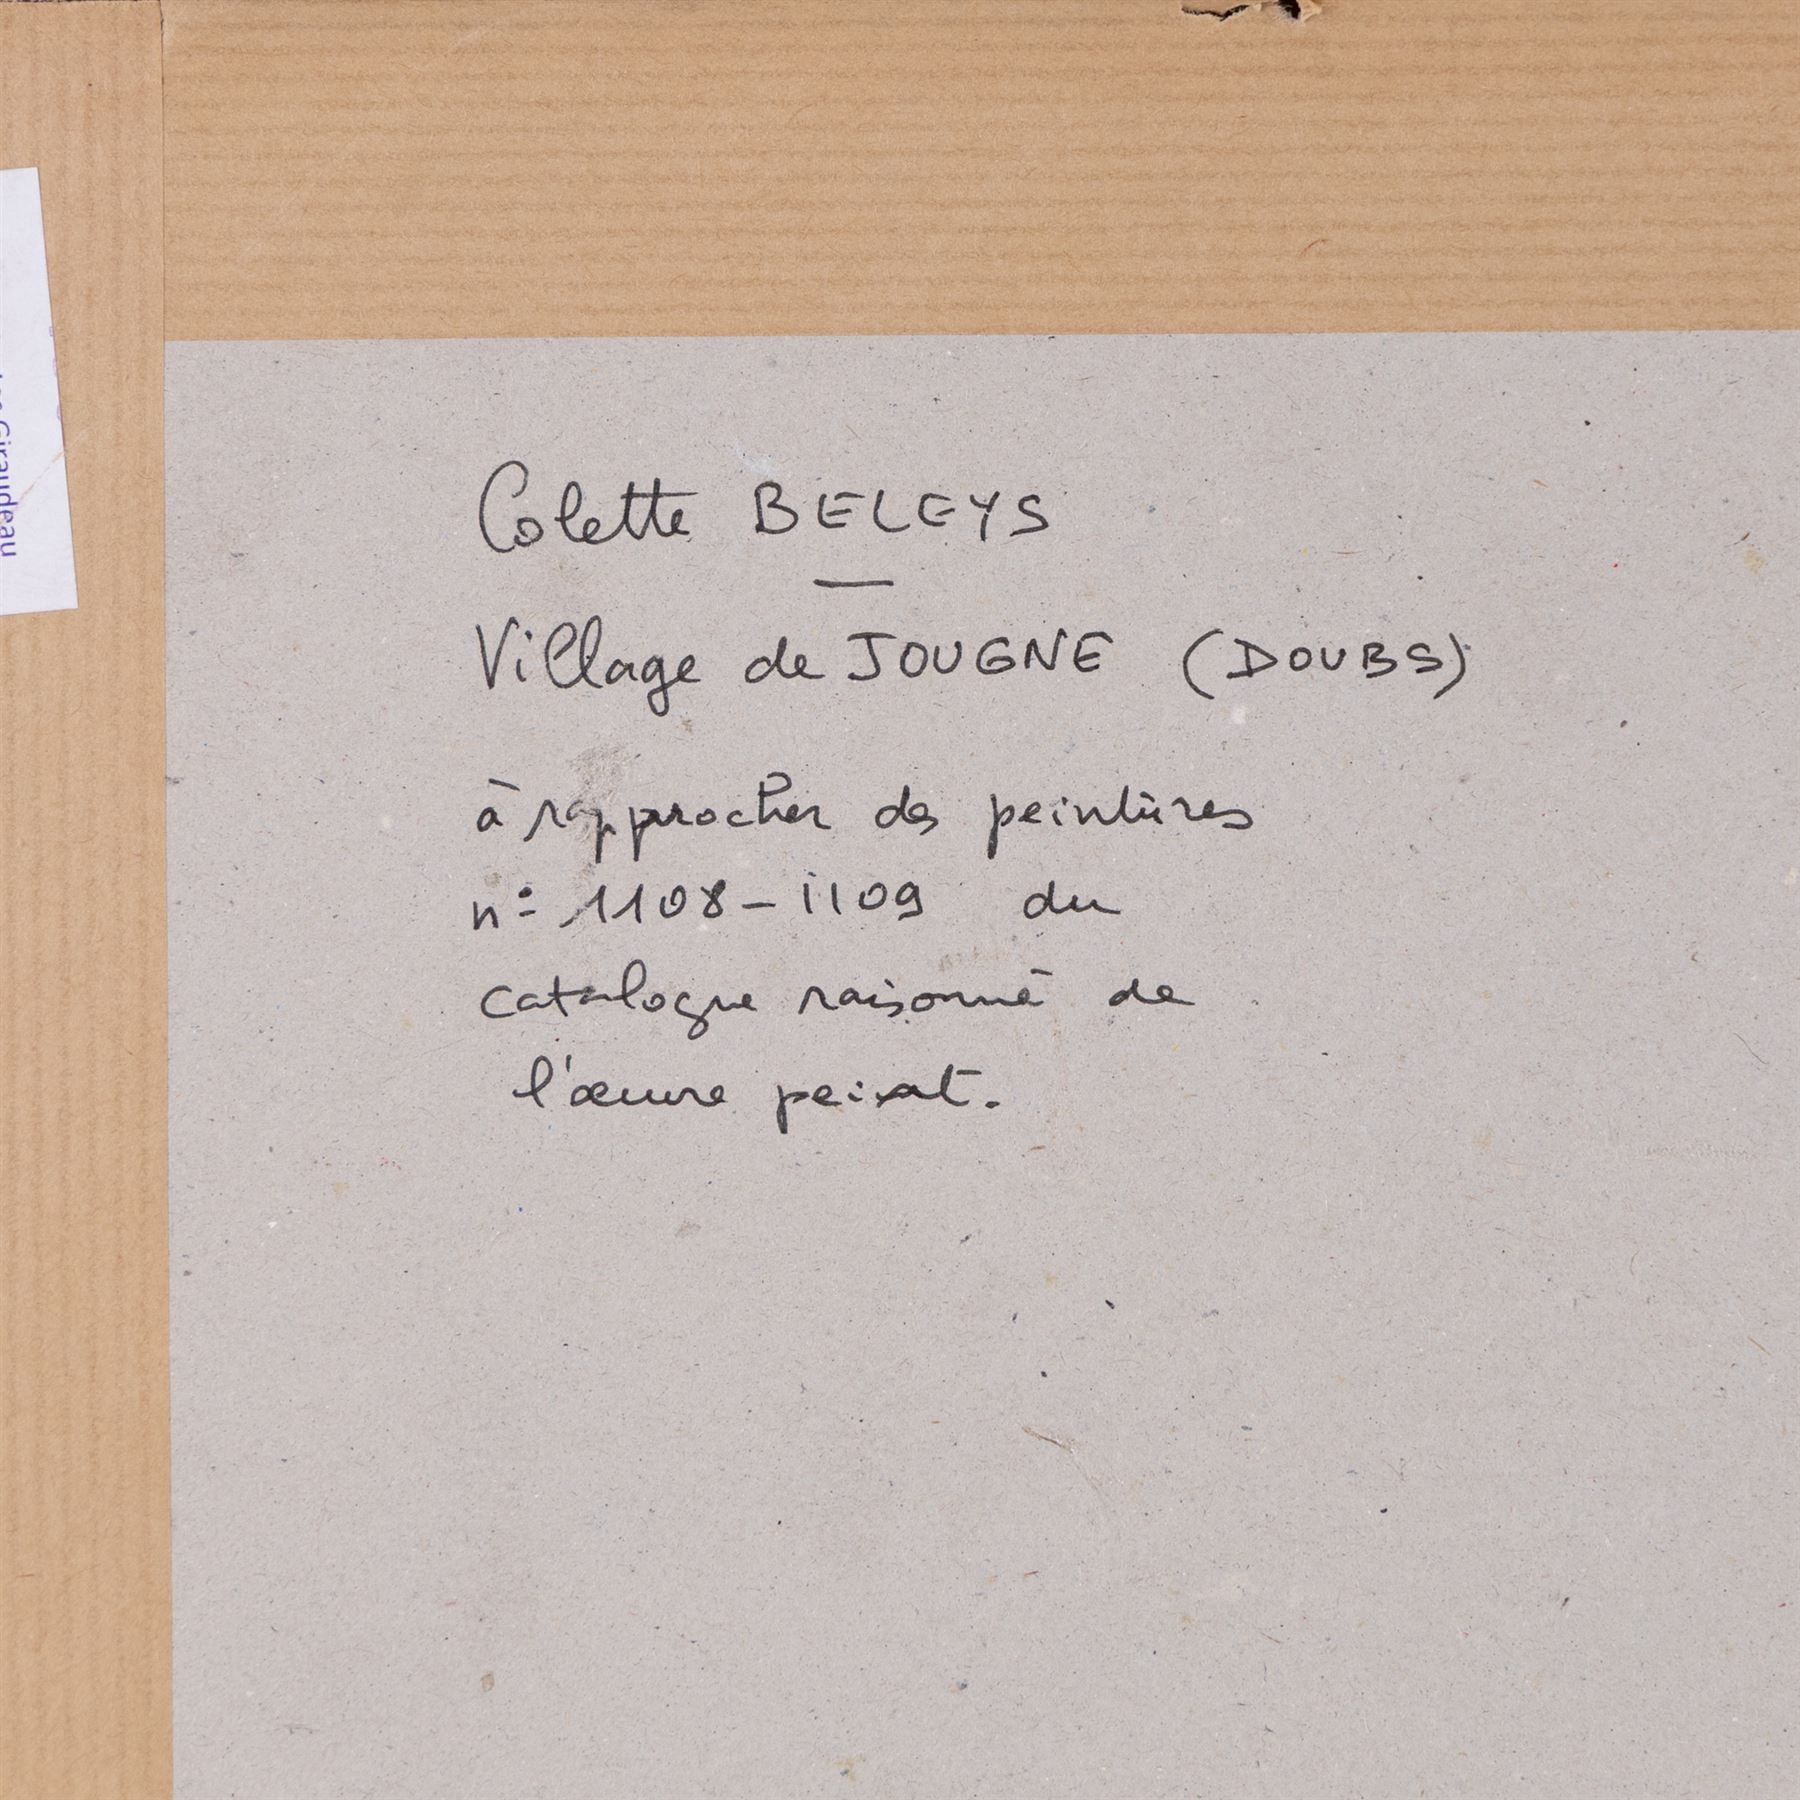 Colette BELEYS
—
Village de JOUGNE (DOUBS)
à rapprocher des peintures
n° 1108 - 1109 du
catalogue raisonné de
l'œuvre peint.
Giraudeau